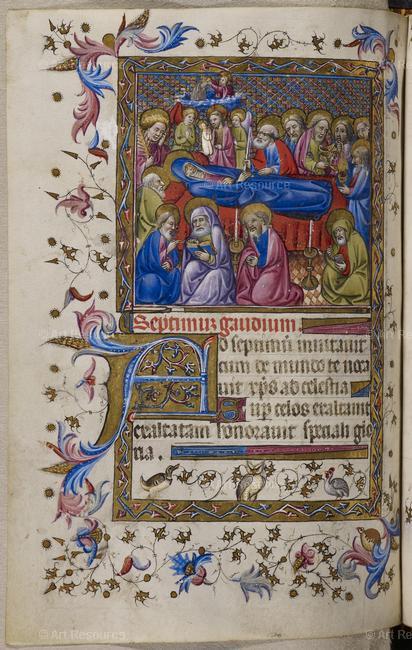 Septimum gaudium.
Ad septimũ inuitauit
cum de mundo te
uit xp̃s ab celestia
Sup celos exaltauit
exaltatam honorauit speciali glo
ria.
© Art Resource
© Art Resource
© Art Resource
© Art Resource
© Art Resource